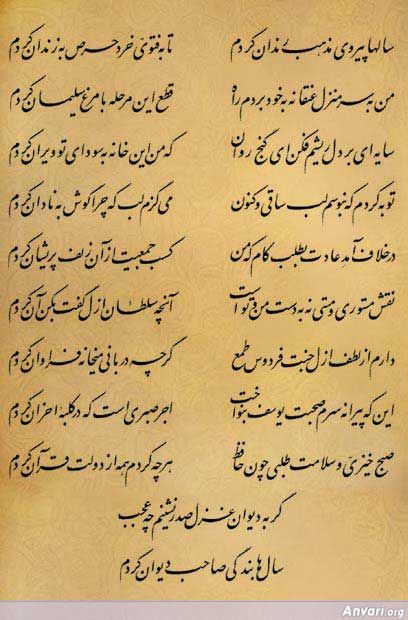 سالها پیروی مذهب رندان کردم تا به فتوی خرد حرص به زندان کردم
من به سر منزل عنقا نه به خود بردم راه قطع این مرحله با مرغ سلیمان کردم
سایه ای بر دل ریشم فکن ای گنج روان که من این خانه به سودای تو ویران کردم
توبه کردم که نبوسم لب ساقی و کنون می گزم لب که چرا گوش به نادان کردم
در خلاف آمد عادت بطلب کام که من کسب جمعیت از آن زلف پریشان کردم
نقش مستوری و مستی نه به دست من و توست آنچه سلطان ازل گفت بکن آن کردم
دارم از لطف ازل جنت فردوس طمع گرچه دربانی میخانه فراوان کردم
این که پیرانه سرم صحبت یوسف بنواخت اجر صبری است که در کلبه احزان کردم
صبح خیزی و سلامت طلبی چون حافظ هر چه کردم همه از دولت قرآن کردم
گر به دیوان غزل صدر نشینم چه عجب
سال ها بندگی صاحب دیوان کردم
Anvari.org